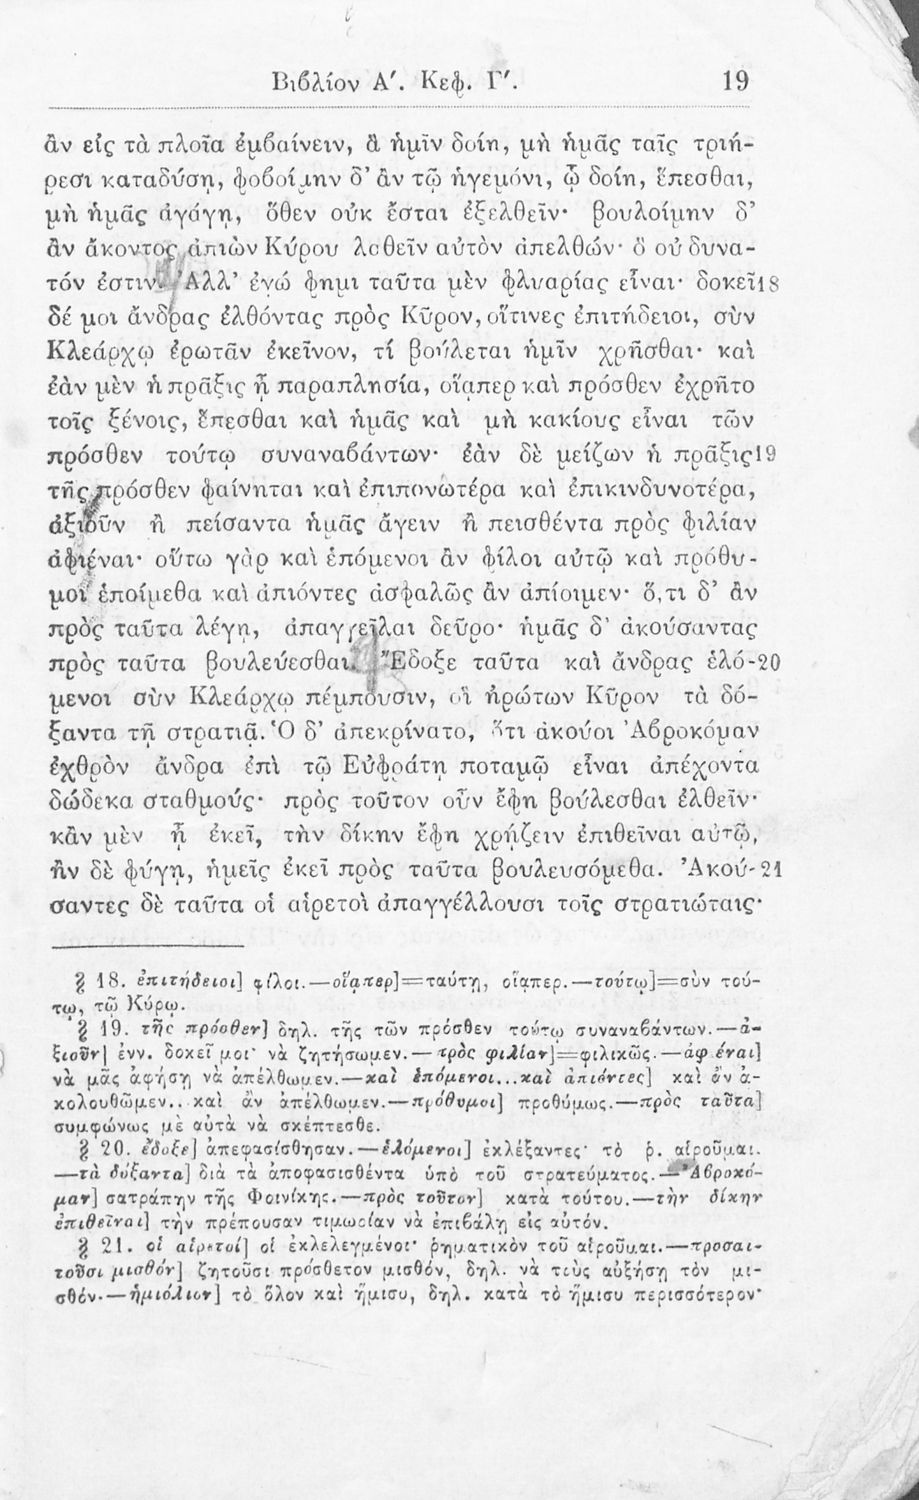 Βιβλίον Α'. Κεφ. Γ'. 19
ἂν εἰς τὰ πλοῖα ἐμβαίνειν, ἃ ἡμῖν δοίη, μὴ ἡμᾶς ταῖς τριή-
ρεσι καταδύσῃ, φοβοίμην δ' ἂν τῷ ἡγεμόνι, ᾧ δοίη, ἕπεσθαι,
μὴ ἡμᾶς ἀγάγῃ, ὅθεν οὐκ ἔσται ἐξελθεῖν· βουλοίμην δ'
ἂν ἄκοντος ἀπιὼν Κύρου λαθεῖν αὐτὸν ἀπελθών· ὃ οὐ δυνα-
τόν ἐστιν. Ἀλλ' ἐγώ φημι ταῦτα μὲν φλυαρίας εἶναι· δοκεῖ 18
δέ μοι ἄνδρας ἐλθόντας πρὸς Κῦρον, οἵτινες ἐπιτήδειοι, σὺν
Κλεάρχῳ ἐρωτᾶν ἐκεῖνον, τί βούλεται ἡμῖν χρῆσθαι· καὶ
ἐὰν μὲν ἡ πρᾶξις ᾖ παραπλησία, οἵᾳπερ καὶ πρόσθεν ἐχρῆτο
τοῖς ξένοις, ἕπεσθαι καὶ ἡμᾶς καὶ μὴ κακίους εἶναι τῶν
πρόσθεν τούτῳ συναναβάντων· ἐὰν δὲ μείζων ἡ πρᾶξις 19
τῆς πρόσθεν φαίνηται καὶ ἐπιπονωτέρα καὶ ἐπικινδυνοτέρα,
ἀξιοῦν ἢ πείσαντα ἡμᾶς ἄγειν ἢ πεισθέντα πρὸς φιλίαν
ἀφιέναι· οὕτω γὰρ καὶ ἑπόμενοι ἂν φίλοι αὐτῷ καὶ πρόθυ-
μοι ἑποίμεθα καὶ ἀπιόντες ἀσφαλῶς ἂν ἀπίοιμεν· ὅ,τι δ' ἂν
πρὸς ταῦτα λέγῃ, ἀπαγγεῖλαι δεῦρο· ἡμᾶς δ' ἀκούσαντας
πρὸς ταῦτα βουλεύεσθαι. Ἔδοξε ταῦτα καὶ ἄνδρας ἑλό- 20
μενοι σὺν Κλεάρχῳ πέμπουσιν, οἳ ἠρώτων Κῦρον τὰ δό-
ξαντα τῇ στρατιᾷ. Ὁ δ' ἀπεκρίνατο, ὅτι ἀκούοι Ἀβροκόμαν
ἐχθρὸν ἄνδρα ἐπὶ τῷ Εὐφράτῃ ποταμῷ εἶναι ἀπέχοντα
δώδεκα σταθμούς· πρὸς τοῦτον οὖν ἔφη βούλεσθαι ἐλθεῖν·
κἂν μὲν ᾖ ἐκεῖ, τὴν δίκην ἔφη χρῄζειν ἐπιθεῖναι αὐτῷ,
ἢν δὲ φύγῃ, ἡμεῖς ἐκεῖ πρὸς ταῦτα βουλευσόμεθα. Ἀκού- 21
σαντες δὲ ταῦτα οἱ αἱρετοὶ ἀπαγγέλλουσι τοῖς στρατιώταις·
§ 18. ἐπιτήδειοι] φίλοι.—οἵᾳπερ]=ταύτῃ, οἵᾳπερ.—τούτῳ]=σὺν τού-
τῳ, τῷ Κύρῳ.
§ 19. τῆς πρόσθεν] δηλ. τῆς τῶν πρόσθεν τούτῳ συναναβάντων.—ἀ-
ξιοῦν] ἐνν. δοκεῖ μοι· νὰ ζητήσωμεν.—πρὸς φιλίαν]=φιλικῶς.—ἀφιέναι]
νὰ μᾶς ἀφήσῃ νὰ ἀπέλθωμεν.—καὶ ἑπόμενοι...καὶ ἀπιόντες] καὶ ἂν ἀ-
κολουθῶμεν.. καὶ ἂν ἀπέλθωμεν.—πρόθυμοι] προθύμως.—πρὸς ταῦτα]
συμφώνως μὲ αὐτὰ νὰ σκέπτεσθε.
§ 20. ἔδοξε] ἀπεφασίσθησαν.—ἑλόμενοι] ἐκλέξαντες· τὸ ῥ. αἱροῦμαι.
—τὰ δόξαντα] διὰ τὰ ἀποφασισθέντα ὑπὸ τοῦ στρατεύματος.—Ἀβροκό-
μαν] σατράπην τῆς Φοινίκης.—πρὸς τοῦτον] κατὰ τούτου.—τὴν δίκην
ἐπιθεῖναι] τὴν πρέπουσαν τιμωρίαν νὰ ἐπιβάλῃ εἰς αὐτόν.
§ 21. οἱ αἱρετοί] οἱ ἐκλελεγμένοι· ῥηματικὸν τοῦ αἱροῦμαι.—προσαι-
τοῦσι μισθόν] ζητοῦσι πρόσθετον μισθόν, δηλ. νὰ τοὺς αὐξήσῃ τὸν μι-
σθόν.—ἡμιόλιον] τὸ ὅλον καὶ ἥμισυ, δηλ. κατὰ τὸ ἥμισυ περισσότερον·